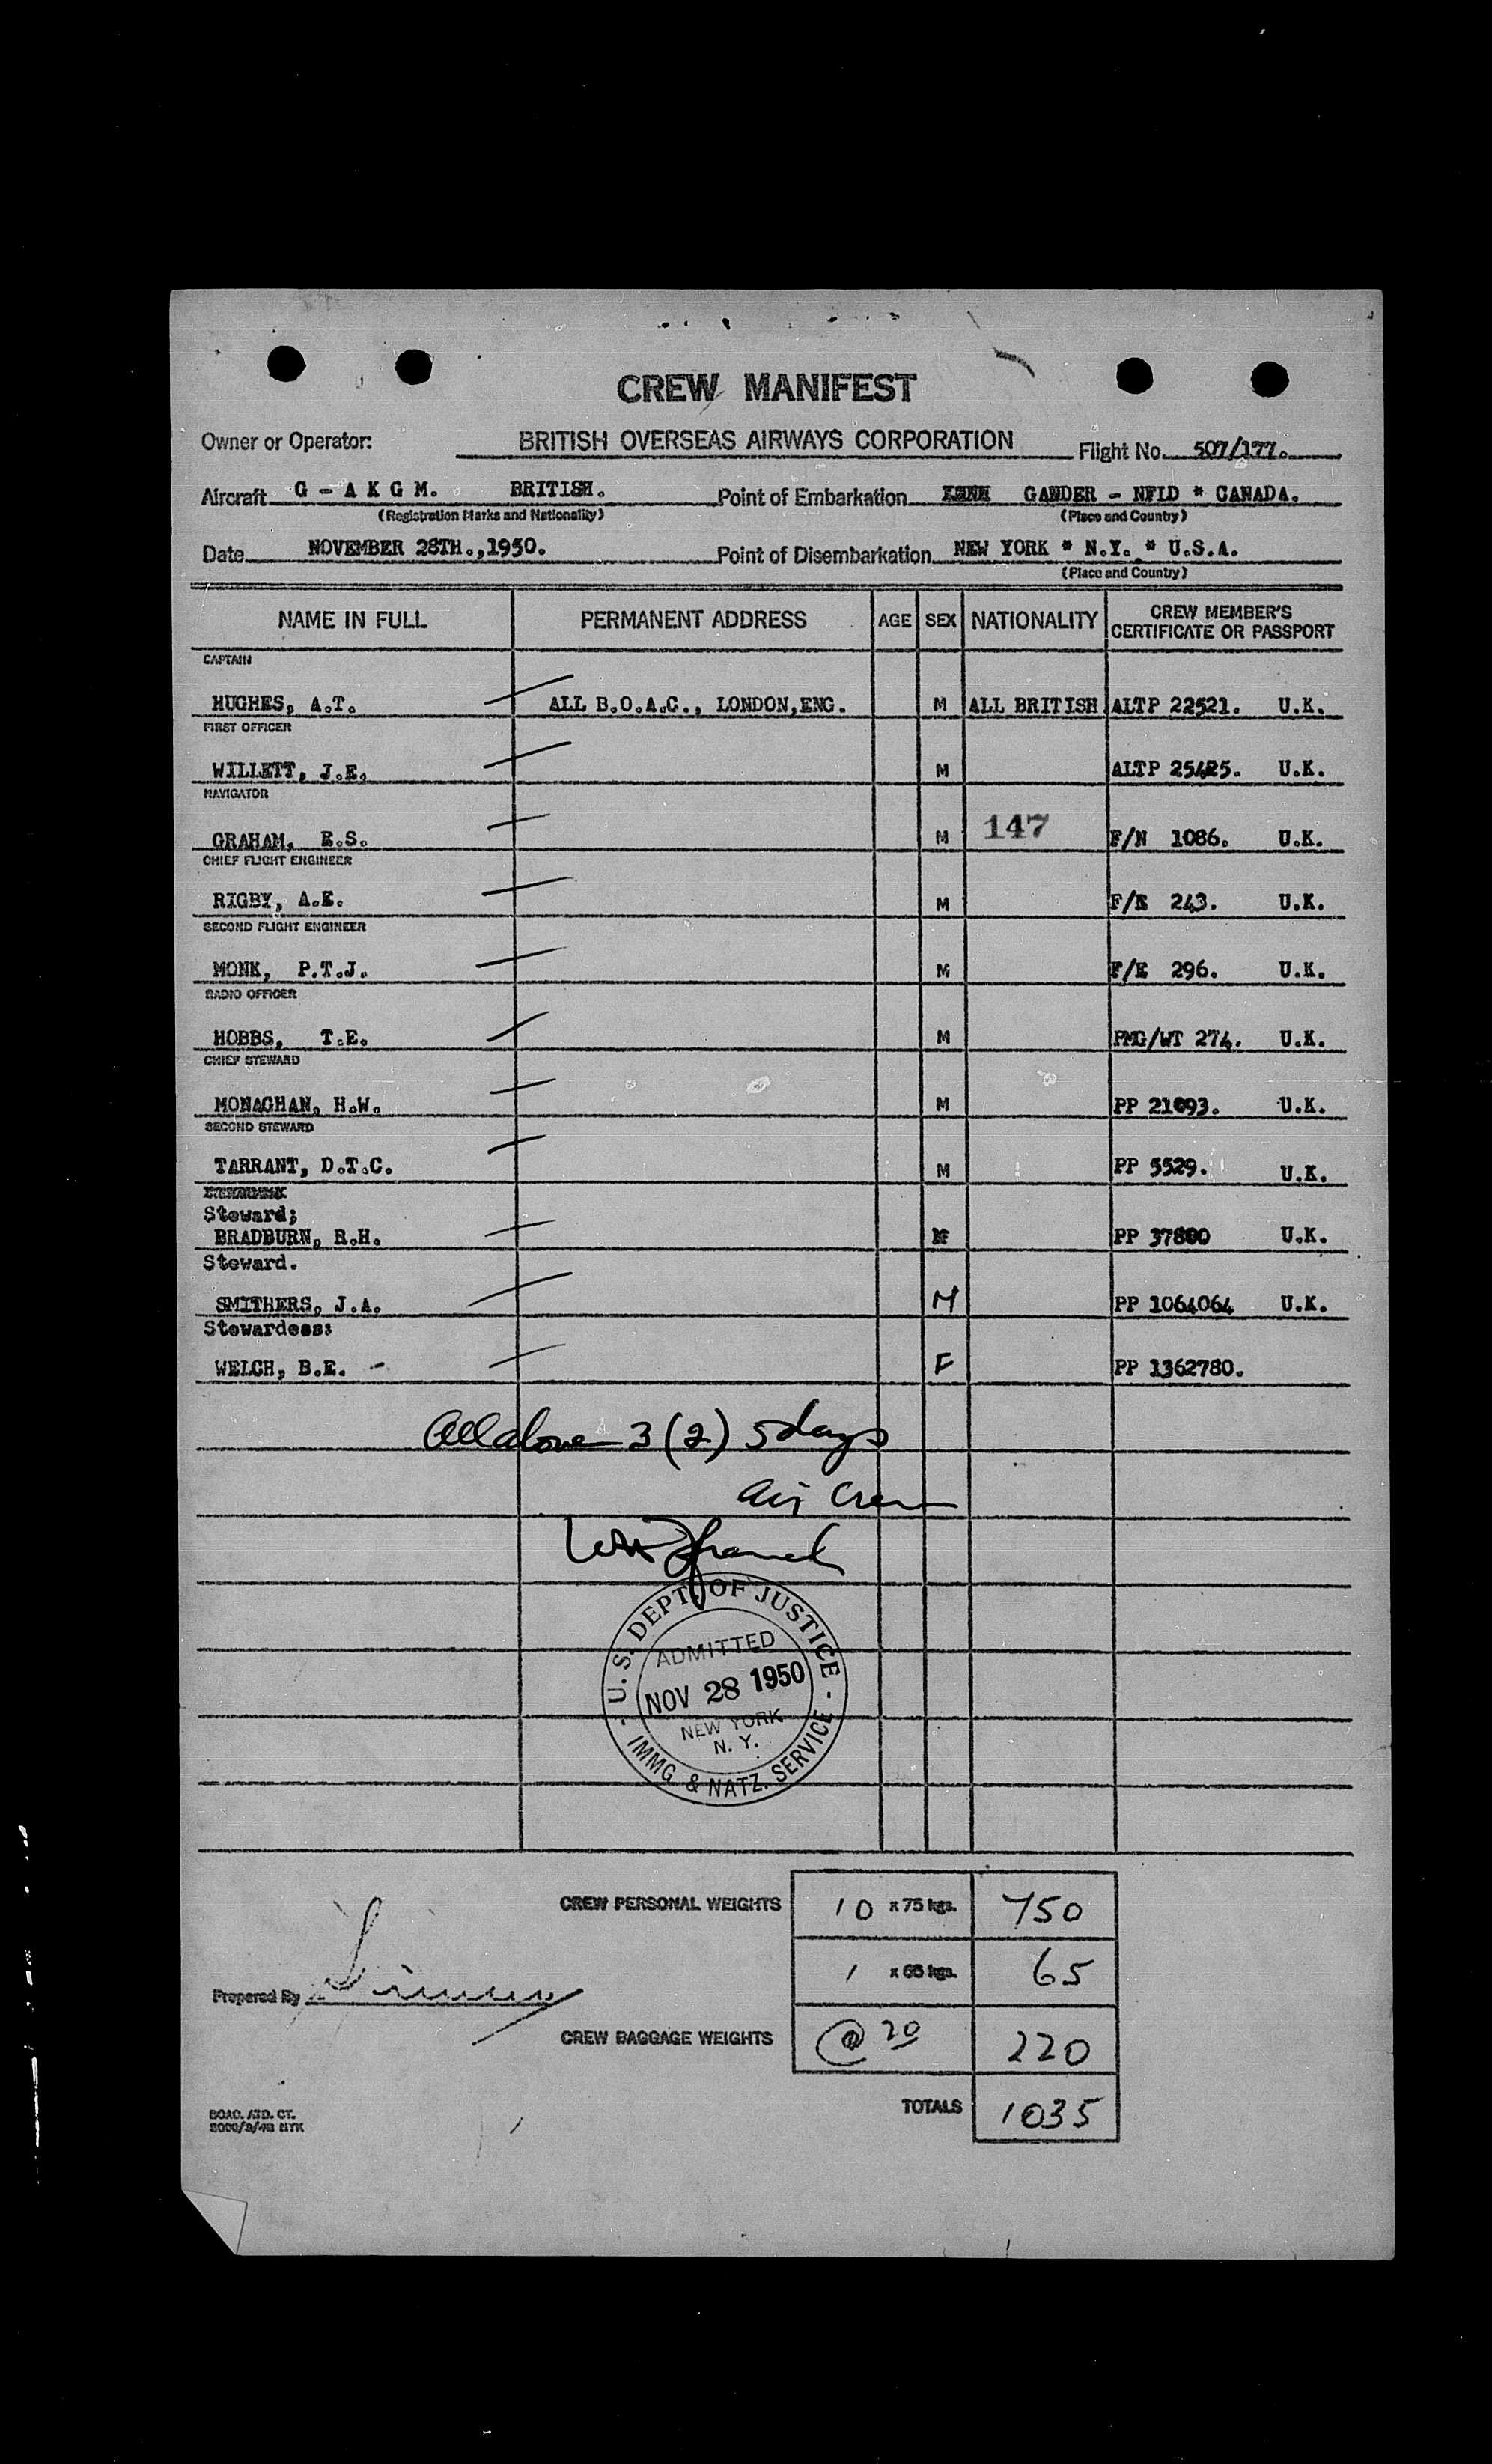 CREW MANIFEST
Owner or Operator: BRITISH OVERSEAS AIRWAYS CORPORATION Flight No. 507/177.
Aircraft G - A K G M. BRITISH. Point of Embarkation GANDER - NFLD * CANADA.
(Registration Marks and Nationality) (Place and Country)
Date NOVEMBER 28TH.,1950. Point of Disembarkation NEW YORK * N.Y. * U.S.A.
(Place and Country)
NAME IN FULL PERMANENT ADDRESS AGE SEX NATIONALITY CREW MEMBER'S CERTIFICATE OR PASSPORT
CAPTAIN
HUGHES, A.T. ALL B.O.A.C., LONDON,ENG. M ALL BRITISH ALTP 22521. U.K.
FIRST OFFICER
WILLETT, J.E. M ALTP 25425. U.K.
NAVIGATOR
GRAHAM, E.S. M 147 F/N 1086. U.K.
CHIEF FLIGHT ENGINEER
RIGBY, A.E. M F/E 243. U.K.
SECOND FLIGHT ENGINEER
MONK, P.T.J. M F/E 296. U.K.
RADIO OFFICER
HOBBS, T.E. M PMG/WT 274. U.K.
CHIEF STEWARD
MONAGHAN, H.W. M PP 21093. U.K.
SECOND STEWARD
TARRANT, D.T.C. M PP 5529. U.K.
Steward;
BRADBURN, R.H. PP 37800 U.K.
Steward.
SMITHERS, J.A. M PP 1064064 U.K.
Stewardess:
WELCH, B.E. - F PP 1362780.
All above 3 (2) 5 days
Air Crew
U.S. DEPT. OF JUSTICE
ADMITTED
NOV 28 1950
NEW YORK
N. Y.
IMMG. & NATZ. SERVICE
CREW PERSONAL WEIGHTS 10 x 75 kgs. 750
1 x 65 kgs. 65
Prepared By
CREW BAGGAGE WEIGHTS @ 20 220
TOTALS 1035
BOAC. ATD. CT.